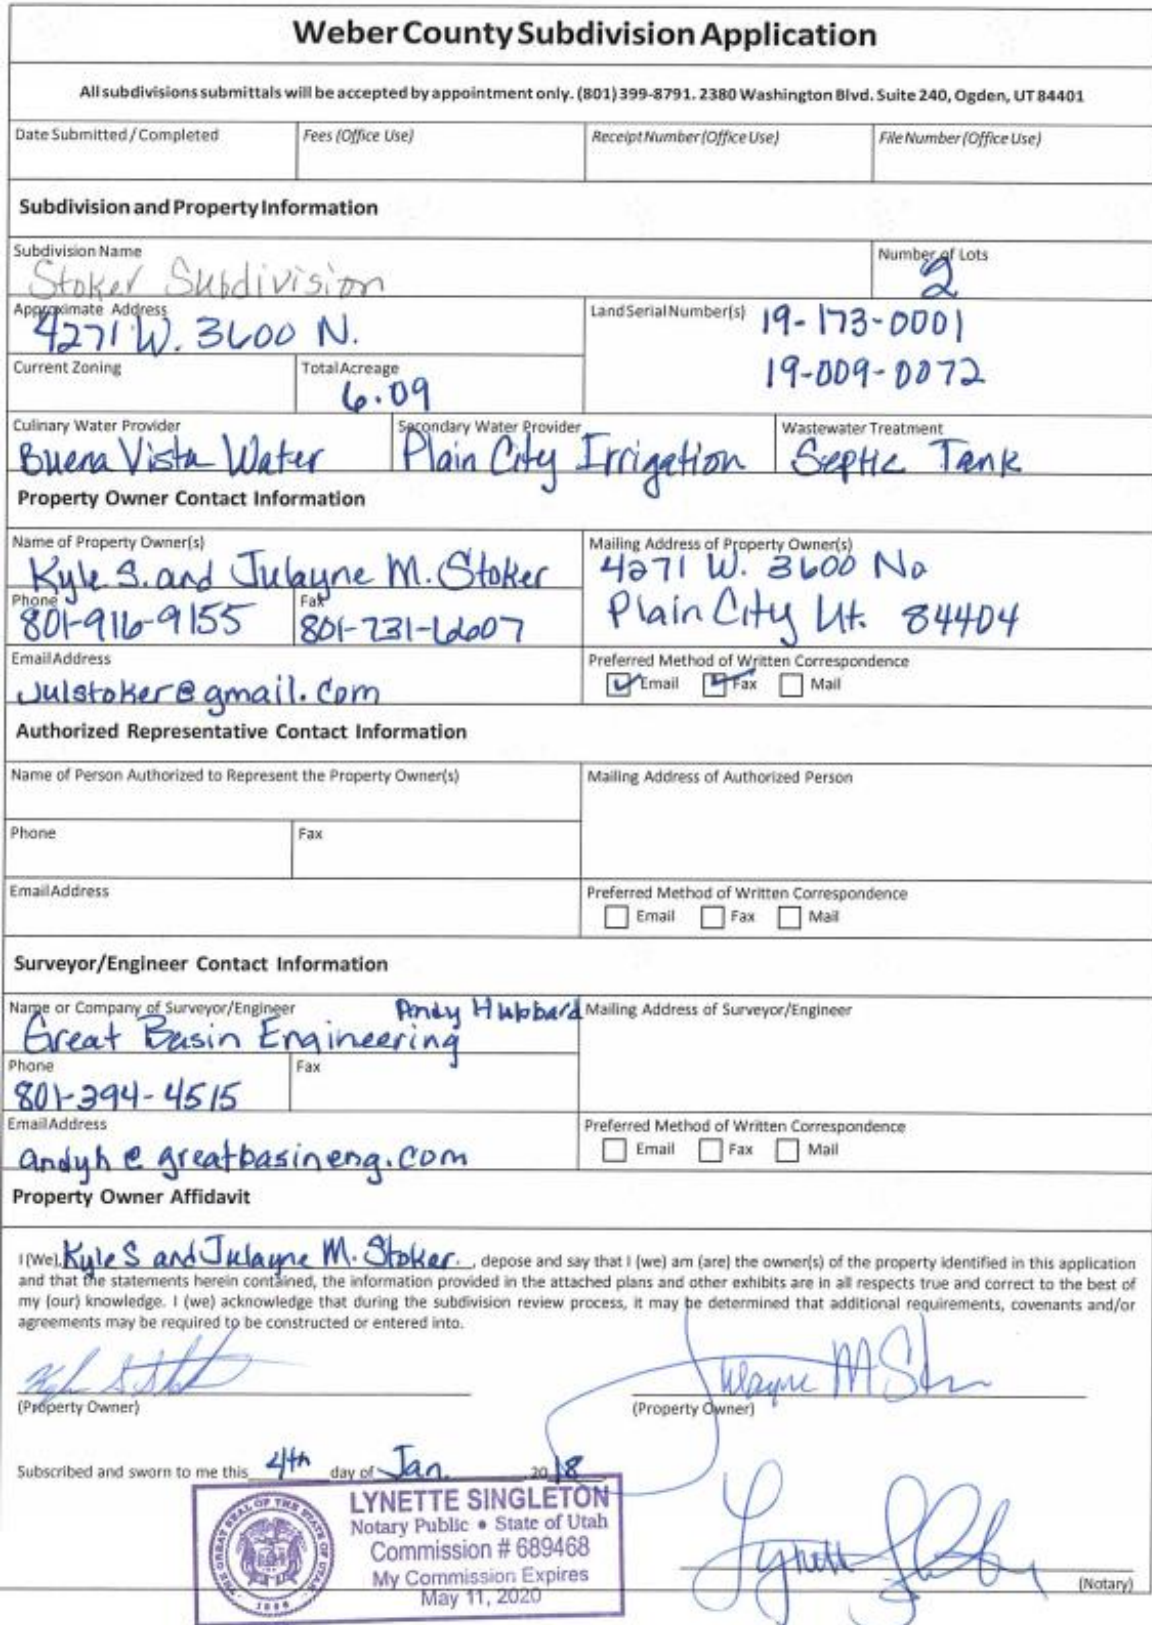 Weber County Subdivision Application
All subdivisions submittals will be accepted by appointment only. (801) 399-8791. 2380 Washington Blvd. Suite 240, Ogden, UT 84401
Date Submitted / Completed
Fees (Office Use)
Receipt Number (Office Use)
File Number (Office Use)
Subdivision and Property Information
Subdivision Name
Stoker Subdivision
Number of Lots
2
Approximate Address
4271 W. 3600 N.
Land Serial Number(s)
19-173-0001
19-009-0072
Current Zoning
Total Acreage
6.09
Culinary Water Provider
Buena Vista Water
Secondary Water Provider
Plain City Irrigation
Wastewater Treatment
Septic Tank
Property Owner Contact Information
Name of Property Owner(s)
Kyle S. and Julayne M. Stoker
Mailing Address of Property Owner(s)
4271 W. 3600 No
Plain City Ut. 84404
Phone
801-916-9155
Fax
801-731-6607
Email Address
julstoker@gmail.com
Preferred Method of Written Correspondence
Email Fax Mail
Authorized Representative Contact Information
Name of Person Authorized to Represent the Property Owner(s)
Mailing Address of Authorized Person
Phone
Fax
Email Address
Preferred Method of Written Correspondence
Email Fax Mail
Surveyor/Engineer Contact Information
Name or Company of Surveyor/Engineer
Andy Hubbard
Great Basin Engineering
Mailing Address of Surveyor/Engineer
Phone
801-394-4515
Fax
Email Address
andyh@greatbasineng.com
Preferred Method of Written Correspondence
Email Fax Mail
Property Owner Affidavit
I (We), Kyle S and Julayne M. Stoker. , depose and say that I (we) am (are) the owner(s) of the property identified in this application
and that the statements herein contained, the information provided in the attached plans and other exhibits are in all respects true and correct to the best of
my (our) knowledge. I (we) acknowledge that during the subdivision review process, it may be determined that additional requirements, covenants and/or
agreements may be required to be constructed or entered into.
Julayne M St
(Property Owner)
(Property Owner)
Subscribed and sworn to me this 4th day of Jan. 2018
LYNETTE SINGLETON
Notary Public • State of Utah
Commission # 689468
My Commission Expires
May 11, 2020
THE GREAT SEAL OF THE STATE OF UTAH
1896
(Notary)